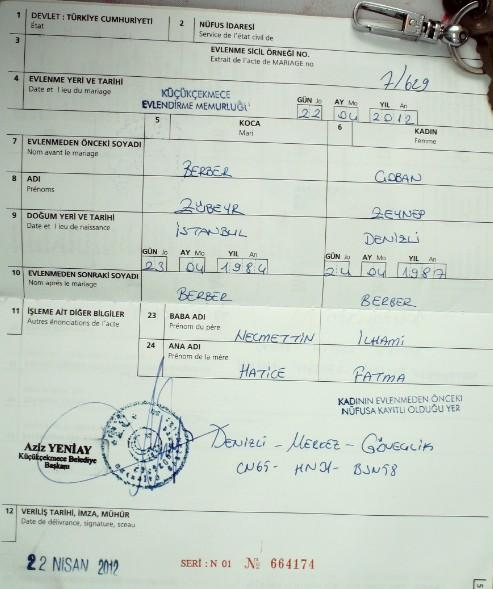 1 DEVLET : TÜRKİYE CUMHURİYETİ
État
2 NÜFUS İDARESİ
Service de l'état civil de
3 EVLENME SİCİL ÖRNEĞİ NO.
Extrait de l'acte de MARIAGE no
7/629
4 EVLENME YERİ VE TARİHİ
Date et lieu du mariage
KÜÇÜKÇEKMECE
EVLENDİRME MEMURLUĞU
GÜN Jo AY Mo YIL An
22 04 2012
5 KOCA
Mari
6 KADIN
Femme
7 EVLENMEDEN ÖNCEKİ SOYADI
Nom avant le mariage
BERBER ÇOBAN
8 ADI
Prénoms
ZÜBEYR ZEYNEP
9 DOĞUM YERİ VE TARİHİ
Date et lieu de naissance
İSTANBUL DENİZLİ
GÜN Jo AY Mo YIL An GÜN Jo AY Mo YIL An
23 04 1984 24 04 1987
10 EVLENMEDEN SONRAKİ SOYADI
Nom après le mariage
BERBER BERBER
11 İŞLEME AİT DİĞER BİLGİLER
Autres énonciations de l'acte
23 BABA ADI
Prénom du père
NECMETTİN İLHAMİ
24 ANA ADI
Prénom de la mère
HATİCE FATMA
KADININ EVLENMEDEN ÖNCEKİ
NÜFUSA KAYITLI OLDUĞU YER
DENİZLİ - MERKEZ -
Aziz YENİAY
Küçükçekmece Belediye
Başkanı
12 VERİLİŞ TARİHİ, İMZA, MÜHÜR
Date de délivrance, signature, sceau
22 NISAN 2012
SERİ : N 01 № 664174
5